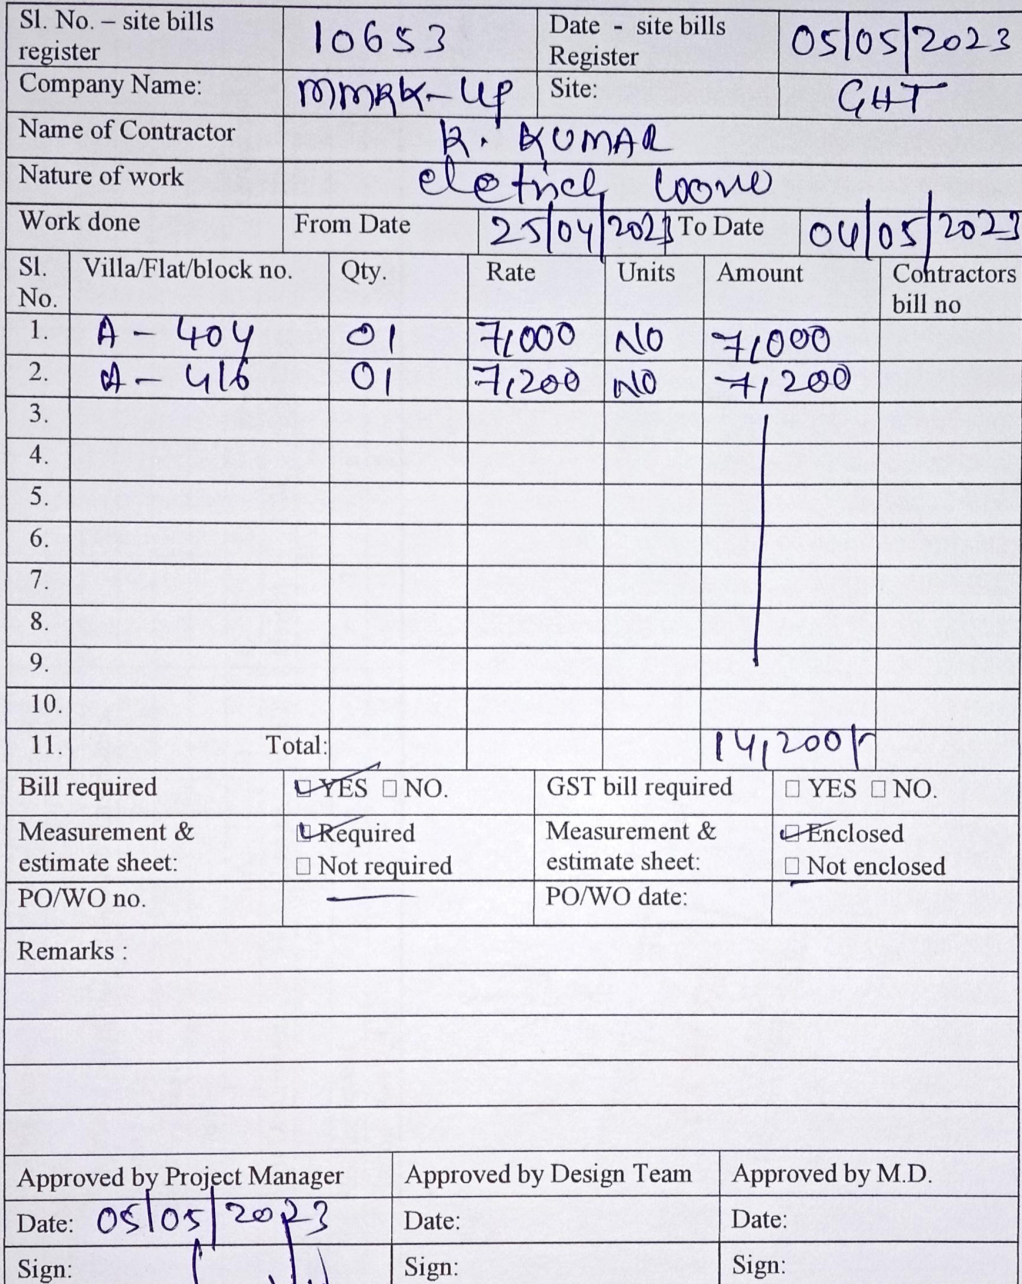 Sl. No. – site bills register 10653 Date – site bills Register 05/05/2023
Company Name: Site: GHT
Name of Contractor K. KUMAR
Nature of work
Work done From Date 25/04/2023 To Date 04/05/2023
Sl. No. Villa/Flat/block no. Qty. Rate Units Amount Contractors bill no
1. A - 404 01 7,000 NO 7,000
2. A - 416 01 7,200 NO 7,200
3.
4.
5.
6.
7.
8.
9.
10.
11. Total: 14,200/-
Bill required ☑ YES ☐ NO. GST bill required ☐ YES ☐ NO.
Measurement & estimate sheet: ☑ Required ☐ Not required Measurement & estimate sheet: ☑ Enclosed ☐ Not enclosed
PO/WO no. — PO/WO date:
Remarks :
Approved by Project Manager Approved by Design Team Approved by M.D.
Date: 05/05/2023 Date: Date:
Sign: Sign: Sign: